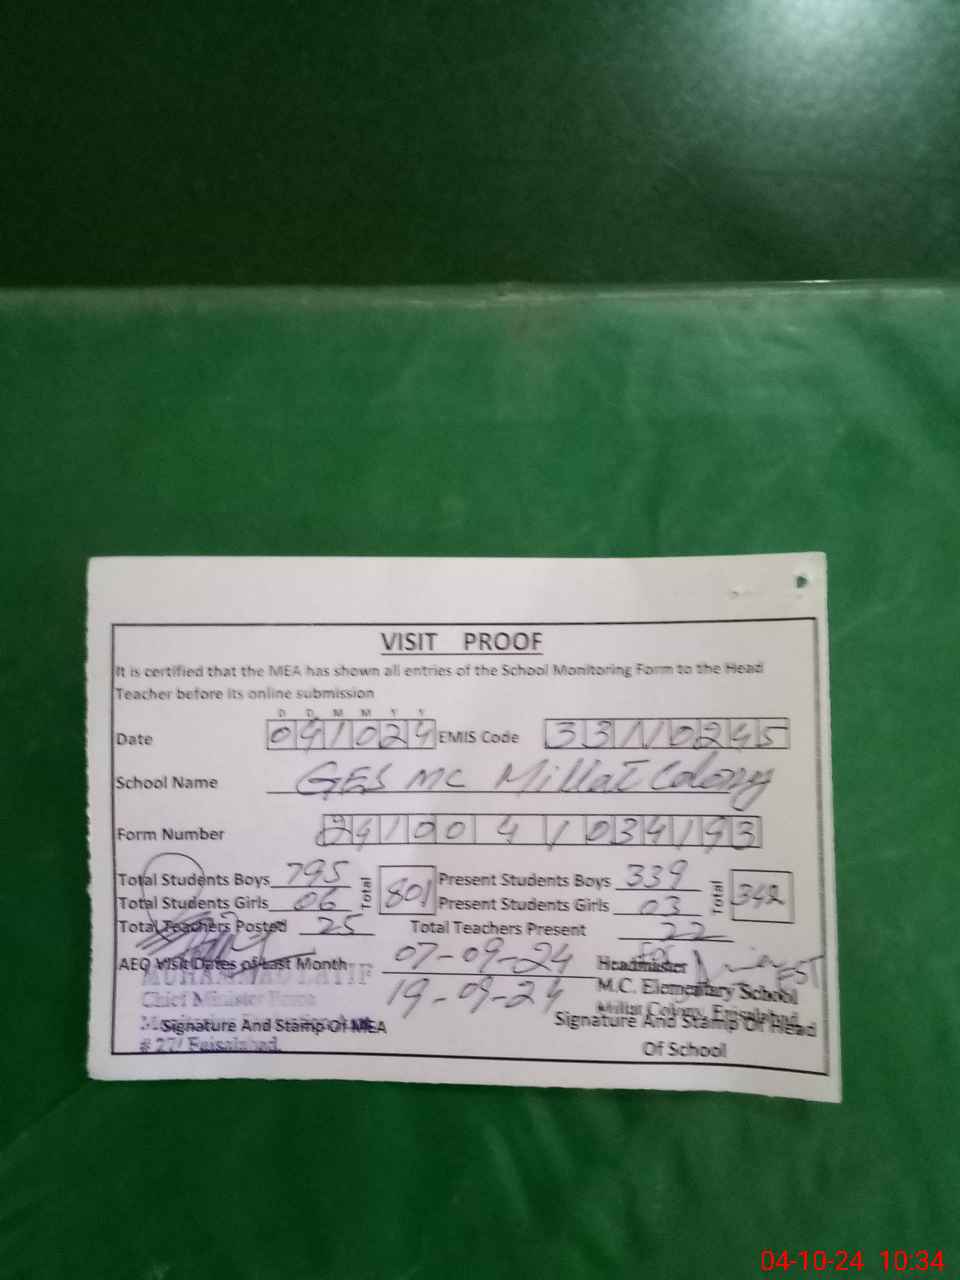 VISIT PROOF
It is certified that the MEA has shown all entries of the School Monitoring Form to the Head
Teacher before its online submission
D D M M Y Y
Date 041024 EMIS Code 33110245
School Name GES MC Millat Colony
Form Number
Total Students Boys 795 Total 801 Present Students Boys 339 Total 342
Total Students Girls 06 Present Students Girls 03
Total Teachers Posted 25 Total Teachers Present 22
AEO Visit Dates of Last Month 07-09-24
19-09-24
for EST
Headmaster
M.C. Elementary School
Millat Colony, Faisalabad
MUHAMMAD LATIF
Chief Minister
# 27/ Faisalabad.
Signature And Stamp Of MEA
Signature And Stamp Of Head
Of School
04-10-24 10:34